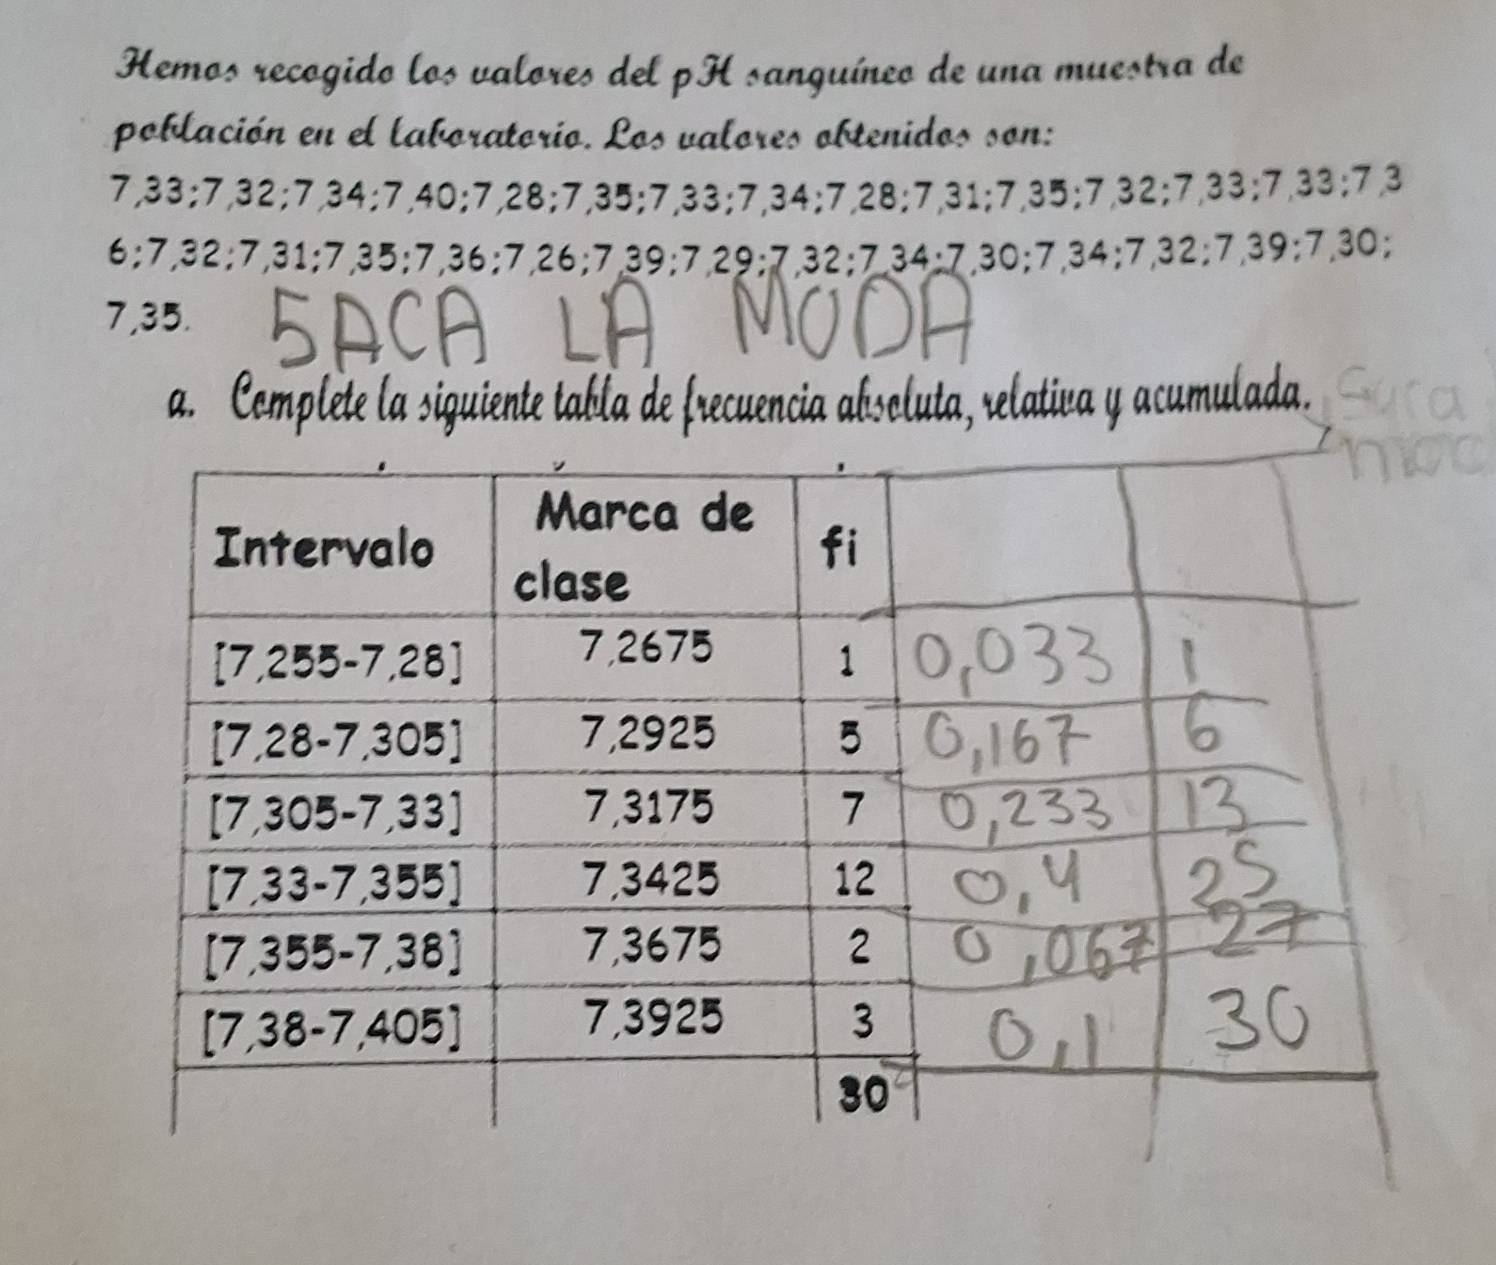 Hemos recogido los valores del pH sanguíneo de una muestra de
población en el laboratorio. Los valores obtenidos son:
7,33;7,32;7,34;7,40;7,28;7,35;7,33;7,34;7,28;7,31;7,35;7,32;7,33;7,33;7,3
6;7,32;7,31;7,35;7,36;7,26;7,39;7,29;7,32;7,34;7,30;7,34;7,32;7,39;7,30;
7,35. SACA LA MODA
a. Complete la siguiente tabla de frecuencia absoluta, relativa y acumulada.
Intervalo Marca de clase fi
[7,255-7,28] 7,2675 1 0,033 1
[7,28-7,305] 7,2925 5 0,167 6
[7,305-7,33] 7,3175 7 0,233 13
[7,33-7,355] 7,3425 12 0,4 25
[7,355-7,38] 7,3675 2 0,067 27
[7,38-7,405] 7,3925 3 0,1 30
30